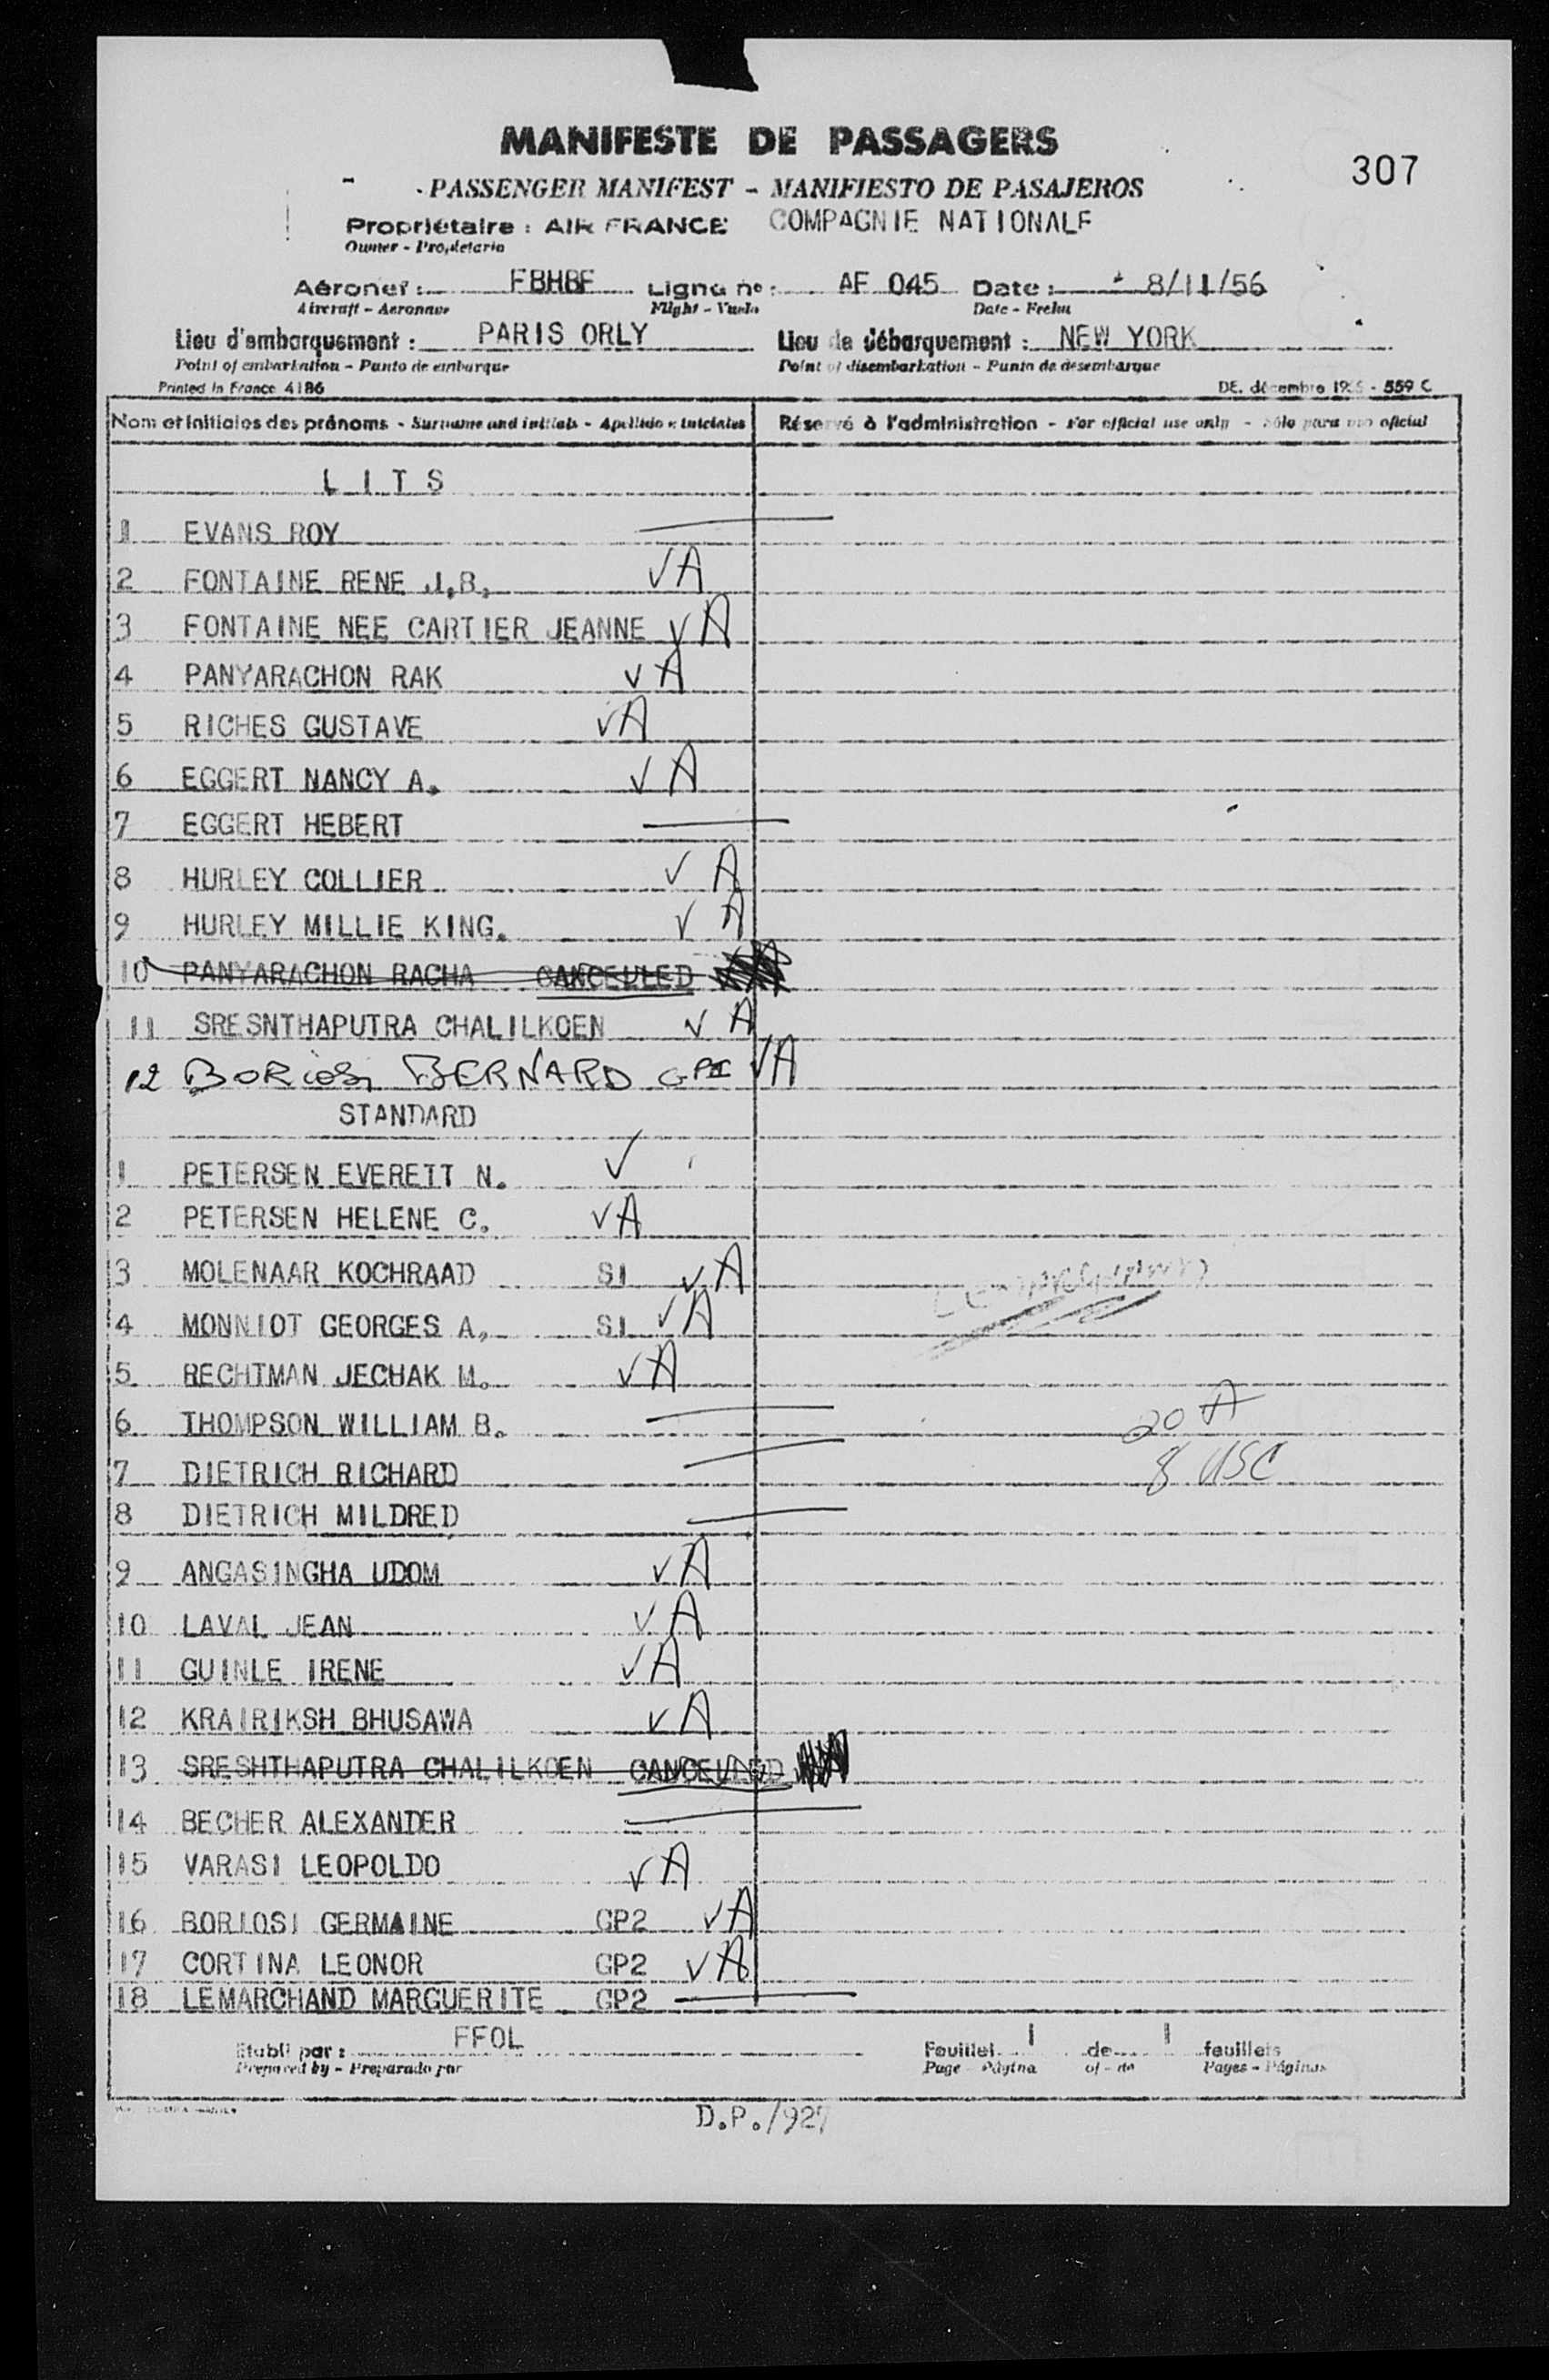 MANIFESTE DE PASSAGERS
307
PASSENGER MANIFEST - MANIFIESTO DE PASAJEROS
Propriétaire : AIR FRANCE COMPAGNIE NATIONALE
Owner - Propietario
Aéronef : FBHBF Ligne no : AF 045 Date : 8/11/56
Aircraft - Aeronave Flight - Vuelo Date - Fecha
Lieu d'embarquement : PARIS ORLY Lieu de débarquement : NEW YORK
Point of embarkation - Punto de embarque Point of disembarkation - Punto de desembarque
Printed in France 4186 DE. décembre - 559 C
Nom et initiales des prénoms - Surname and initials - Apellido e iniciales Réservé à l'administration - For official use only - Sólo para uso oficial
LITS
1 EVANS ROY
2 FONTAINE RENE J.B. √A
3 FONTAINE NEE CARTIER JEANNE √A
4 PANYARACHON RAK √A
5 RICHES GUSTAVE √A
6 EGGERT NANCY A. √A
7 EGGERT HEBERT
8 HURLEY COLLIER √A
9 HURLEY MILLIE KING. √A
10 PANYARACHON RACHA CANCELLED
11 SRESNTHAPUTRA CHALILKOEN √A
12 BORIOSI BERNARD √A
STANDARD
1 PETERSEN EVERETT N. √
2 PETERSEN HELENE C. √A
3 MOLENAAR KOCHRAAD SI √A
4 MONNIOT GEORGES A. SI √A
5 RECHTMAN JECHAK M. √A
6 THOMPSON WILLIAM B. 20 A
7 DIETRICH RICHARD 8 USC
8 DIETRICH MILDRED
9 ANGASINGHA UDOM √A
10 LAVAL JEAN √A
11 GUINLE IRENE √A
12 KRAIRIKSH BHUSAWA √A
13 SRESHTHAPUTRA CHALILKOEN CANCELLED
14 BECHER ALEXANDER
15 VARASI LEOPOLDO √A
16 BORIOSI GERMAINE GP2 √A
17 CORTINA LEONOR GP2 √A
18 LEMARCHAND MARGUERITE GP2
Etabli par : FFOL Feuillet 1 de 1 feuillets
Prepared by - Preparado por Page - Página of - de Pages - Páginas
D.P./927